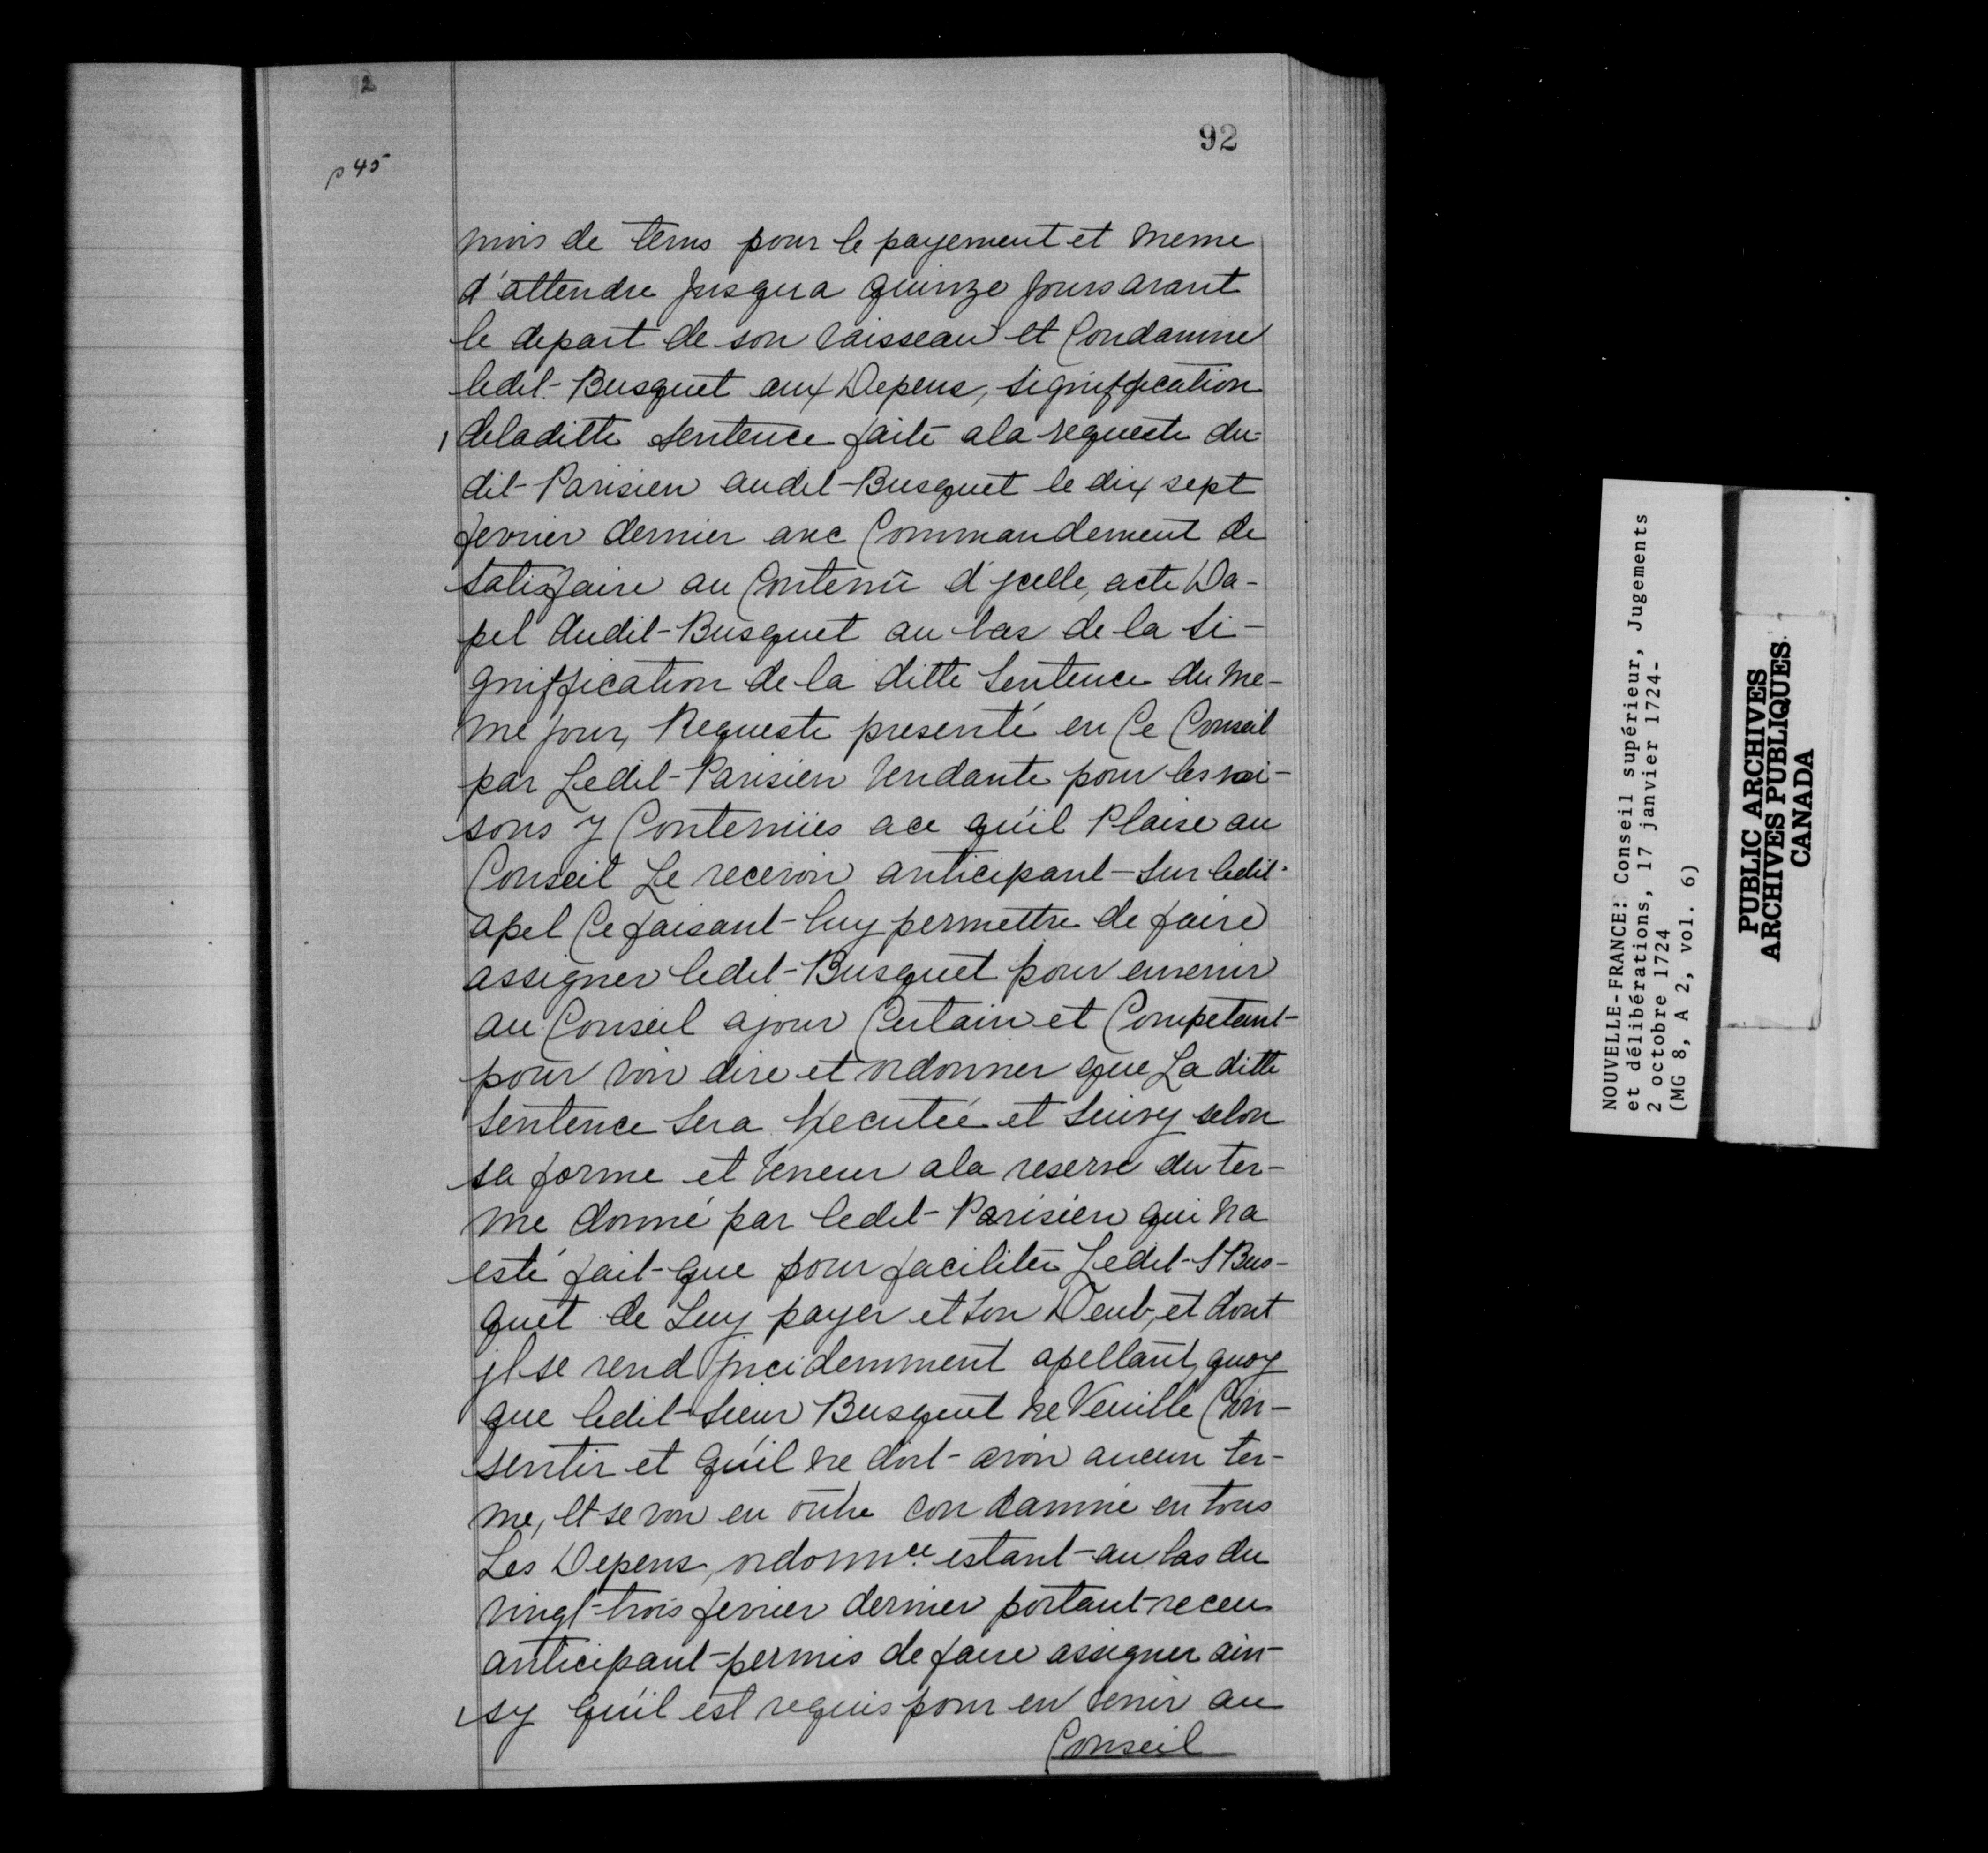 92
92
p 45
mois de tems pour le payement et meme
d'attendre jusqu'a quinze jours avant
le depart de son vaisseau et Condamne
ledit Busquet aux Depens, Signiffication
deladitte Sentence faite ala requeste du
dit Parisien audit Busquet le dix sept
fevrier dernier avec Commandement de
satisfaire au Contenû d'jcelle, acte Da-
pel dudit Busquet au bas de la Si-
gniffication de la ditte Sentence du me-
me jour, Requeste presenté en Ce Conseil
par Ledit Parisien tendante pour les rai-
sons y Contenües ace qu'il Plaise au
Conseil Le recevoir anticipant Sur ledit
apel Ce faisant luy permettre de faire
assigner ledit Busquet pour envenir
au Conseil ajour Certain et Competant
pour voir dire et ordonner que La ditte
Sentence Sera Executée et Suivy selon
sa forme et teneur ala reserve du ter-
me donné par ledit Parisien qui na
esté fait que pour faciliter Ledit S Bus-
quet de Luy payer et son Deub, et dont
jl se rend jncidemment apellant, quoy
que ledit Sieur Busquet ne Veuille Con-
sentir et qu'il ne doit avoir aucun ter-
me, et se voir en outre condamné en tous
Les Depens, ordonnce. estant au bas du
vingt trois fevrier dernier portant receu
anticipant permis de faire assigner ain-
sy qu'il est requis pour en venir au
Conseil
NOUVELLE-FRANCE: Conseil supérieur, Jugements
et délibérations, 17 janvier 1724-
2 octobre 1724
(MG 8, A 2, vol. 6)
PUBLIC ARCHIVES
ARCHIVES PUBLIQUES
CANADA